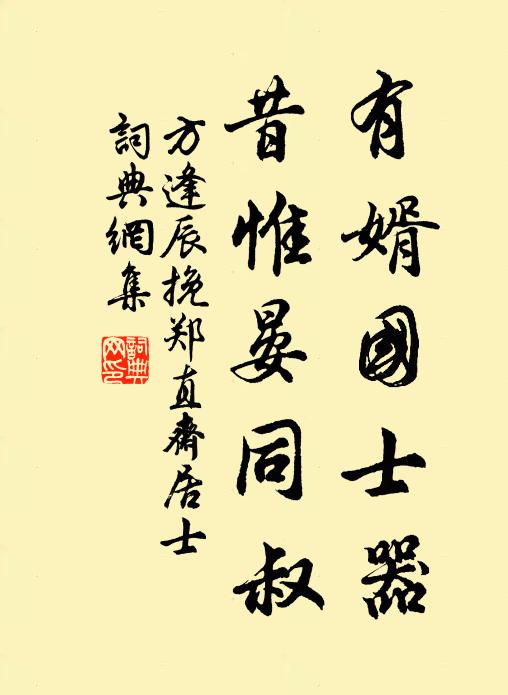 有婿國士器
昔惟晏同叔
方逢辰挽郑直齋居士
詞典網集
詞典网印